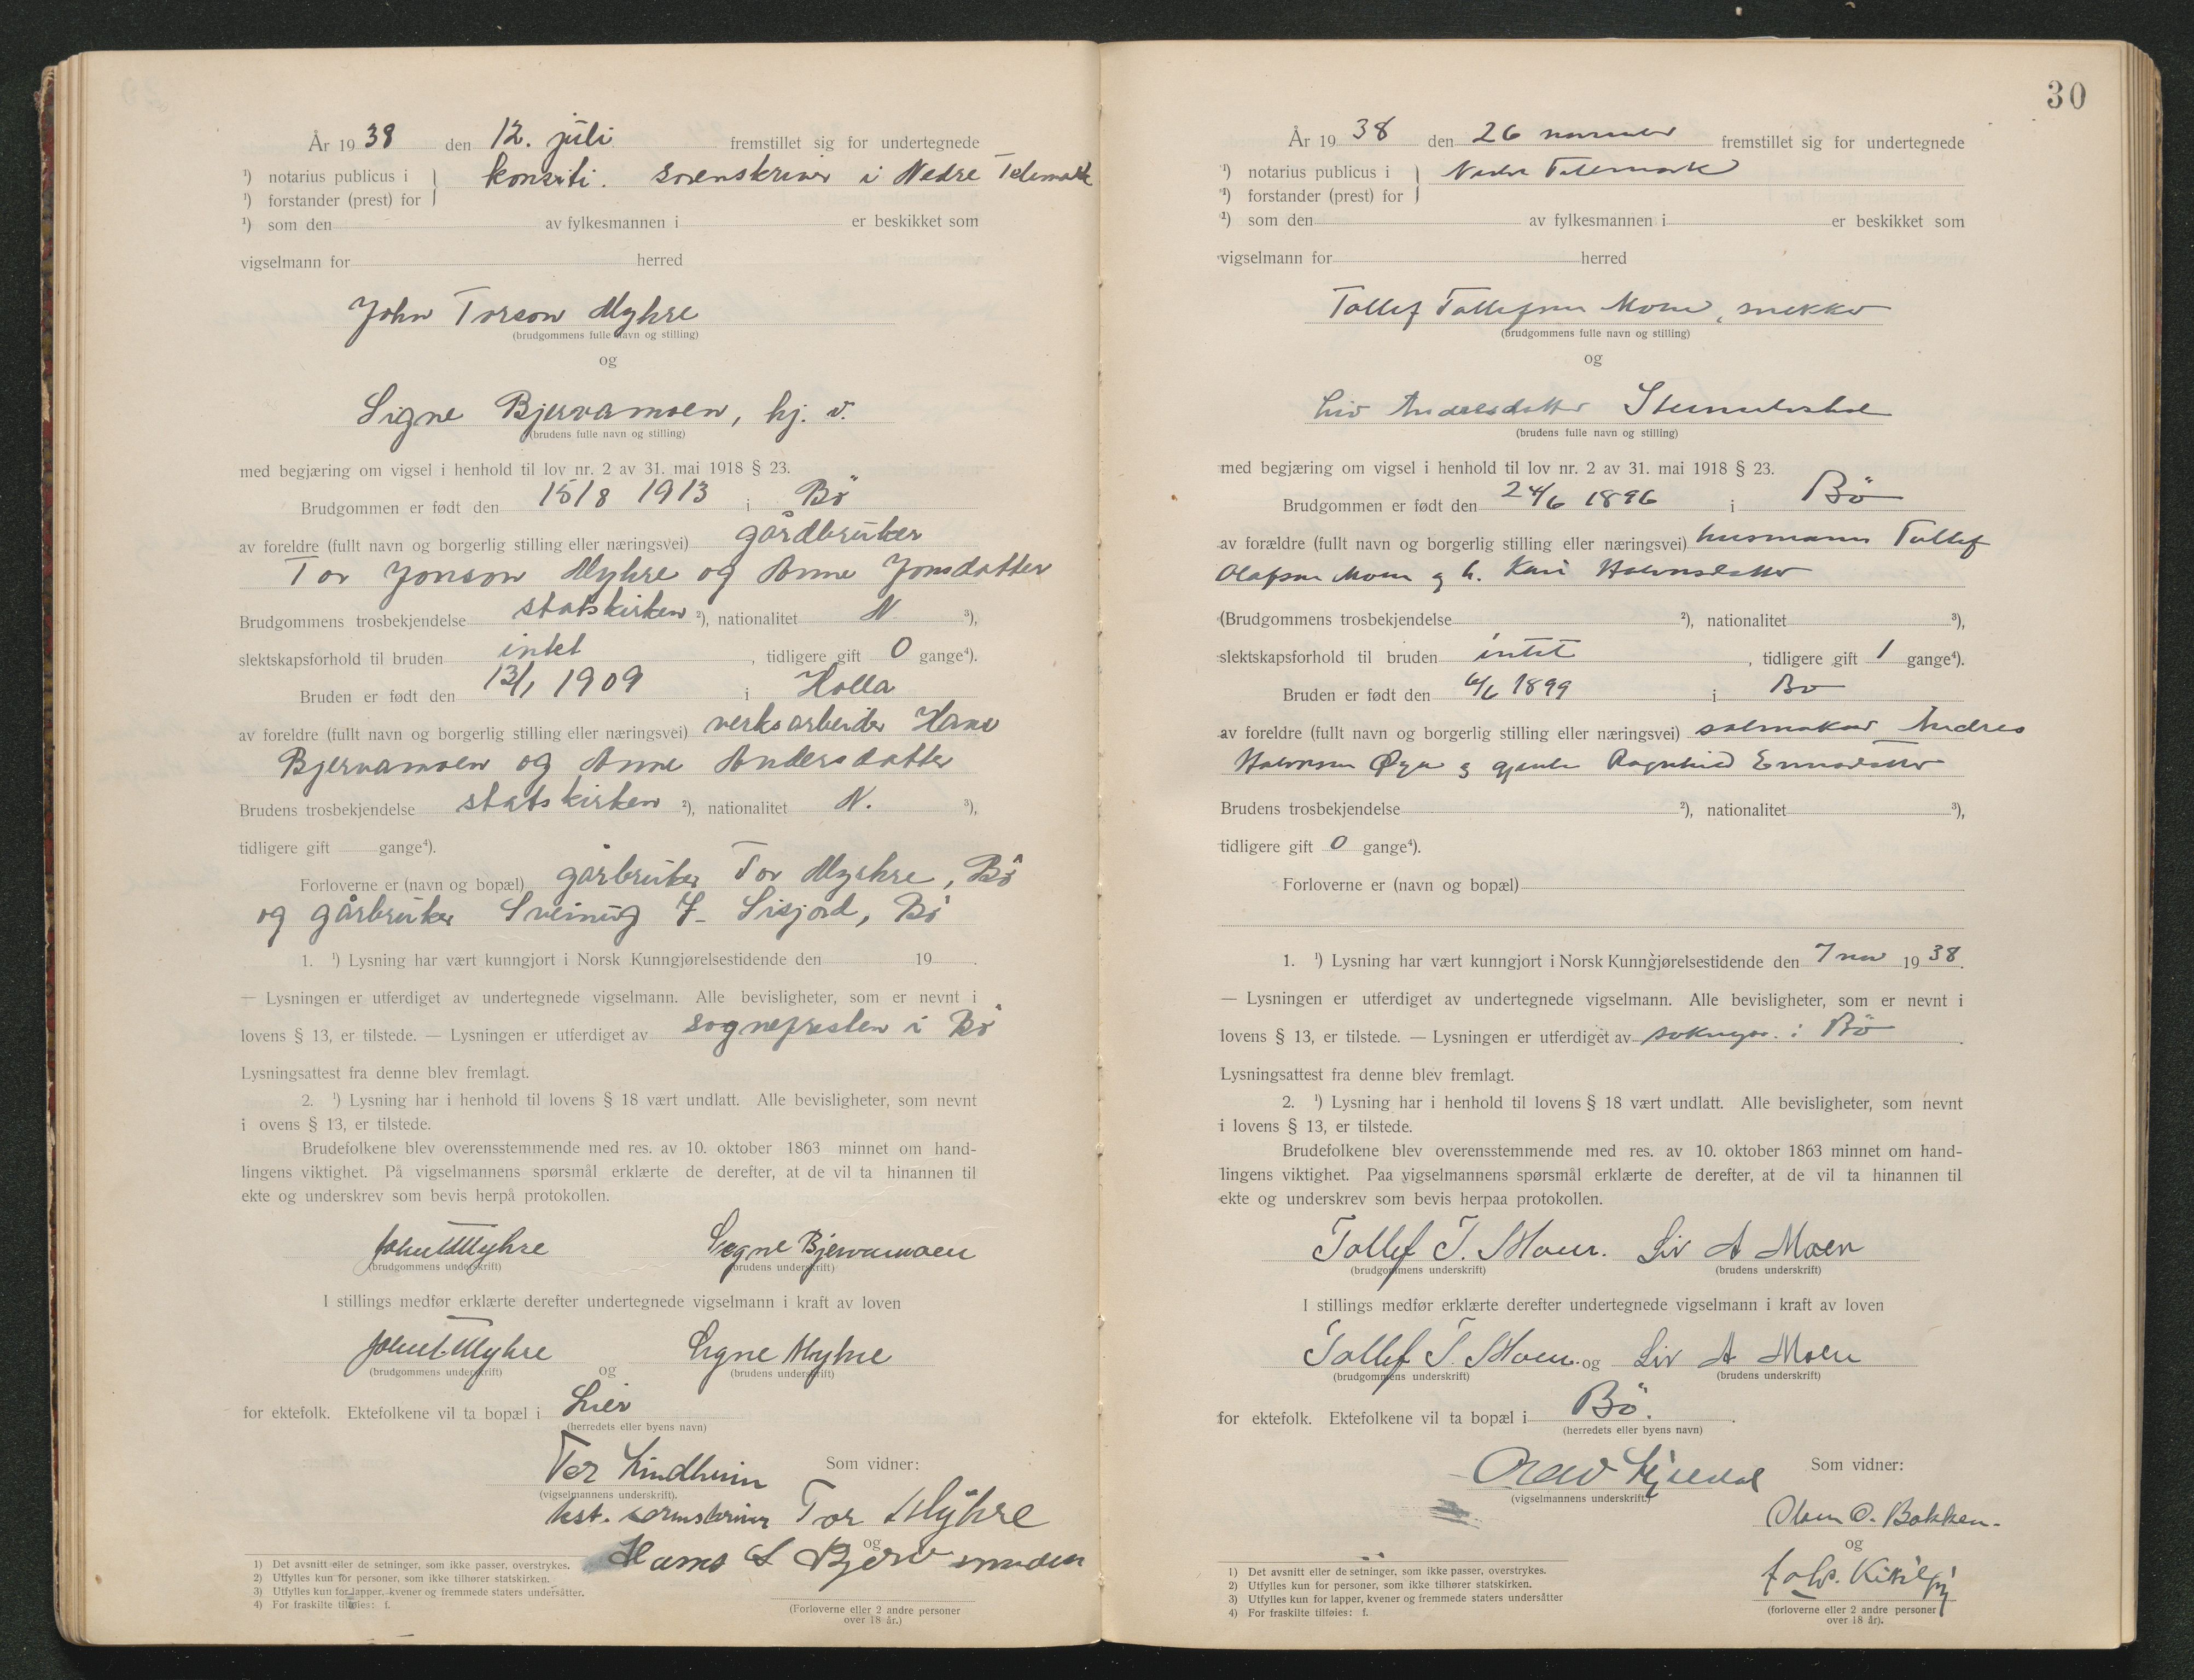 År 19 38 den 12. juli fremstillet sig for undertegnede
¹) notarius publicus i konstit. sorenskriver i Nedre Telemark
¹) forstander (prest) for
¹) som den av fylkesmannen i er beskikket som
vigselmann for herred
John Torson Myhre
(brudgommens fulle navn og stilling)
og
Signe Bjervamoen, hj. v.
(brudens fulle navn og stilling)
med begjæring om vigsel i henhold til lov nr. 2 av 31. mai 1918 § 23.
Brudgommen er født den 15/8 1913 i Bö
av foreldre (fullt navn og borgerlig stilling eller næringsvei) gårdbruker
Tor Jonson Myhre og Anne Jonsdatter
Brudgommens trosbekjendelse statskirken ²), nationalitet N ³),
slektskapsforhold til bruden intet, tidligere gift 0 gange⁴).
Bruden er født den 13/1 1909 i Holla
av foreldre (fullt navn og borgerlig stilling eller næringsvei) verksarbeider Hans
Bjervamoen og Anne Andersdatter
Brudens trosbekjendelse statskirken ²), nationalitet N. ³),
tidligere gift gange⁴).
Forloverne er (navn og bopæl) gårbruker Tor Myhre, Bö
og gårbruker Sveinug Sisjord, Bö
1. ¹) Lysning har vært kunngjort i Norsk Kunngjørelsestidende den 19 .
— Lysningen er utferdiget av undertegnede vigselmann. Alle bevisligheter, som er nevnt i
lovens § 13, er tilstede. — Lysningen er utferdiget av sognepresten i Bö
Lysningsattest fra denne blev fremlagt.
2. ¹) Lysning har i henhold til lovens § 18 vært undlatt. Alle bevisligheter, som nevnt
i ovens § 13, er tilstede.
Brudefolkene blev overensstemmende med res. av 10. oktober 1863 minnet om hand-
lingens viktighet. På vigselmannens spørsmål erklærte de derefter, at de vil ta hinannen til
ekte og underskrev som bevis herpå protokollen.
John T Myhre Signe Bjervamoen
(brudgommens underskrift) (brudens underskrift)
I stillings medfør erklærte derefter undertegnede vigselmann i kraft av loven
John T. Myhre og Signe Myhre
(brudgommens underskrift) (brudens underskrift)
for ektefolk. Ektefolkene vil ta bopæl i Lier
(herredets eller byens navn)
Tor Lindheim Som vidner:
(vigselmannens underskrift).
kst. sorenskriver Tor Myhre
og
Hans Bjerv
1) Det avsnitt eller de setninger, som ikke passer, overstrykes.
2) Utfylles kun for personer, som ikke tilhører statskirken.
3) Utfylles kun for lapper, kvener og fremmede staters undersåtter.
4) For fraskilte tilføies: f.
(Forloverne eller 2 andre personer
over 18 år.)
30
År 19 38 den 26 november fremstillet sig for undertegnede
¹) notarius publicus i Nedre Telemark
¹) forstander (prest) for
¹) som den av fylkesmannen i er beskikket som
vigselmann for herred
Tallef Tallefsen Moen, snekker
(brudgommens fulle navn og stilling)
og
Liv Andresdatter
(brudens fulle navn og stilling)
med begjæring om vigsel i henhold til lov nr. 2 av 31. mai 1918 § 23.
Brudgommen er født den 24/6 1896 i Bö
av forældre (fullt navn og borgerlig stilling eller næringsvei) husmann Tallef
Olafsen Moen og h. Kari Halvorsdatter
(Brudgommens trosbekjendelse ²), nationalitet ³),
slektskapsforhold til bruden intet, tidligere gift 1 gange⁴).
Bruden er født den 6/6 1899 i Bö
av foreldre (fullt navn og borgerlig stilling eller næringsvei) salmaker Andres
Halvorsen Øya og Ragnhild
Brudens trosbekjendelse ²), nationalitet ³),
tidligere gift 0 gange⁴).
Forloverne er (navn og bopæl)
1. ¹) Lysning har vært kunngjort i Norsk Kunngjørelsestidende den 7 nov 19 38.
— Lysningen er utferdiget av undertegnede vigselmann. Alle bevisligheter, som er nevnt i
lovens § 13, er tilstede. — Lysningen er utferdiget av soknepr. i Bö.
Lysningsattest fra denne blev fremlagt.
2. ¹) Lysning har i henhold til lovens § 18 vært undlatt. Alle bevisligheter, som nevnt
i lovens § 13, er tilstede.
Brudefolkene blev overensstemmende med res. av 10. oktober 1863 minnet om hand-
lingens viktighet. Paa vigselmannens spørsmål erklærte de derefter, at de vil ta hinannen til
ekte og underskrev som bevis herpaa protokollen.
Tallef T. Moen. Liv A Moen
(brudgommens underskrift) (brudens underskrift)
I stillings medfør erklærte derefter undertegnede vigselmann i kraft av loven
Tallef T. Moen. og Liv A Moen
(brudgommens underskrift) (brudens underskrift)
for ektefolk. Ektefolkene vil ta bopæl i Bö.
(herredets eller byens navn)
Som vidner:
(vigselmannens underskrift.)
Olav O. Bakken.
og
(forloverne eller 2 andre personer
over 18 år).
1) Det avsnitt eller de setninger, som ikke passer, overstrykes.
2) Utfylles kun for personer, som ikke tilhører statskirken.
3) Utfylles kun for lapper, kvener og fremmede staters undersåtter
4) For fraskilte tilføies: f.